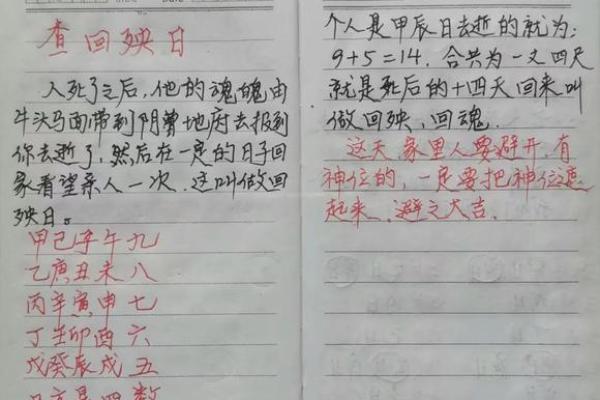 查回殃日
人死了之后,他的魂魄由
牛头马面带到阴曹地府去报到
你去逝了,然后在一定的日子回
家看望亲人一次,这叫做回
殃日。
甲己子午九
乙庚丑未八
丙辛寅申七
丁壬卯酉六
戊癸辰戌五
巳亥是四数
个人是甲辰日去逝的就为:
9+5=14,合共为一丈四尺
就是死后的十四天回来叫
做回殃,回魂.
这天,家里人要避开,有
神位的,一定要把神位遮
起来,避之大吉.